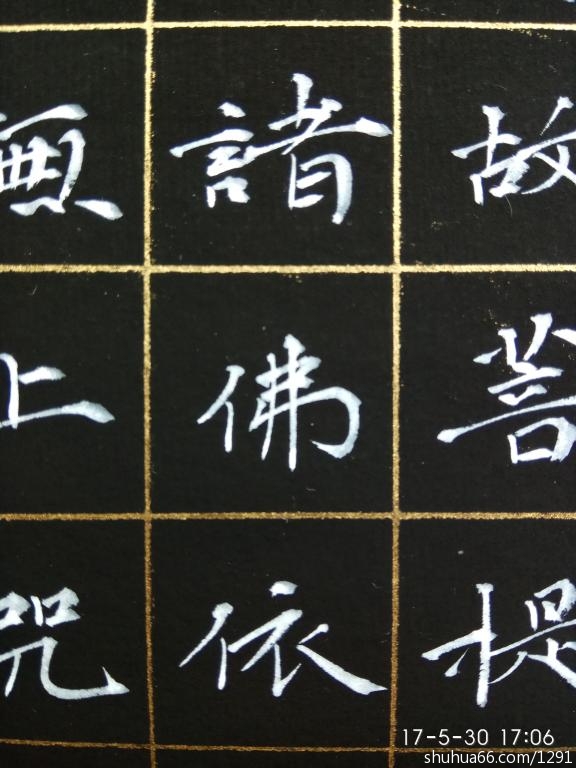 故菩提
諸佛依
無上咒
17-5-30 17:06
shuhua66.com/1291